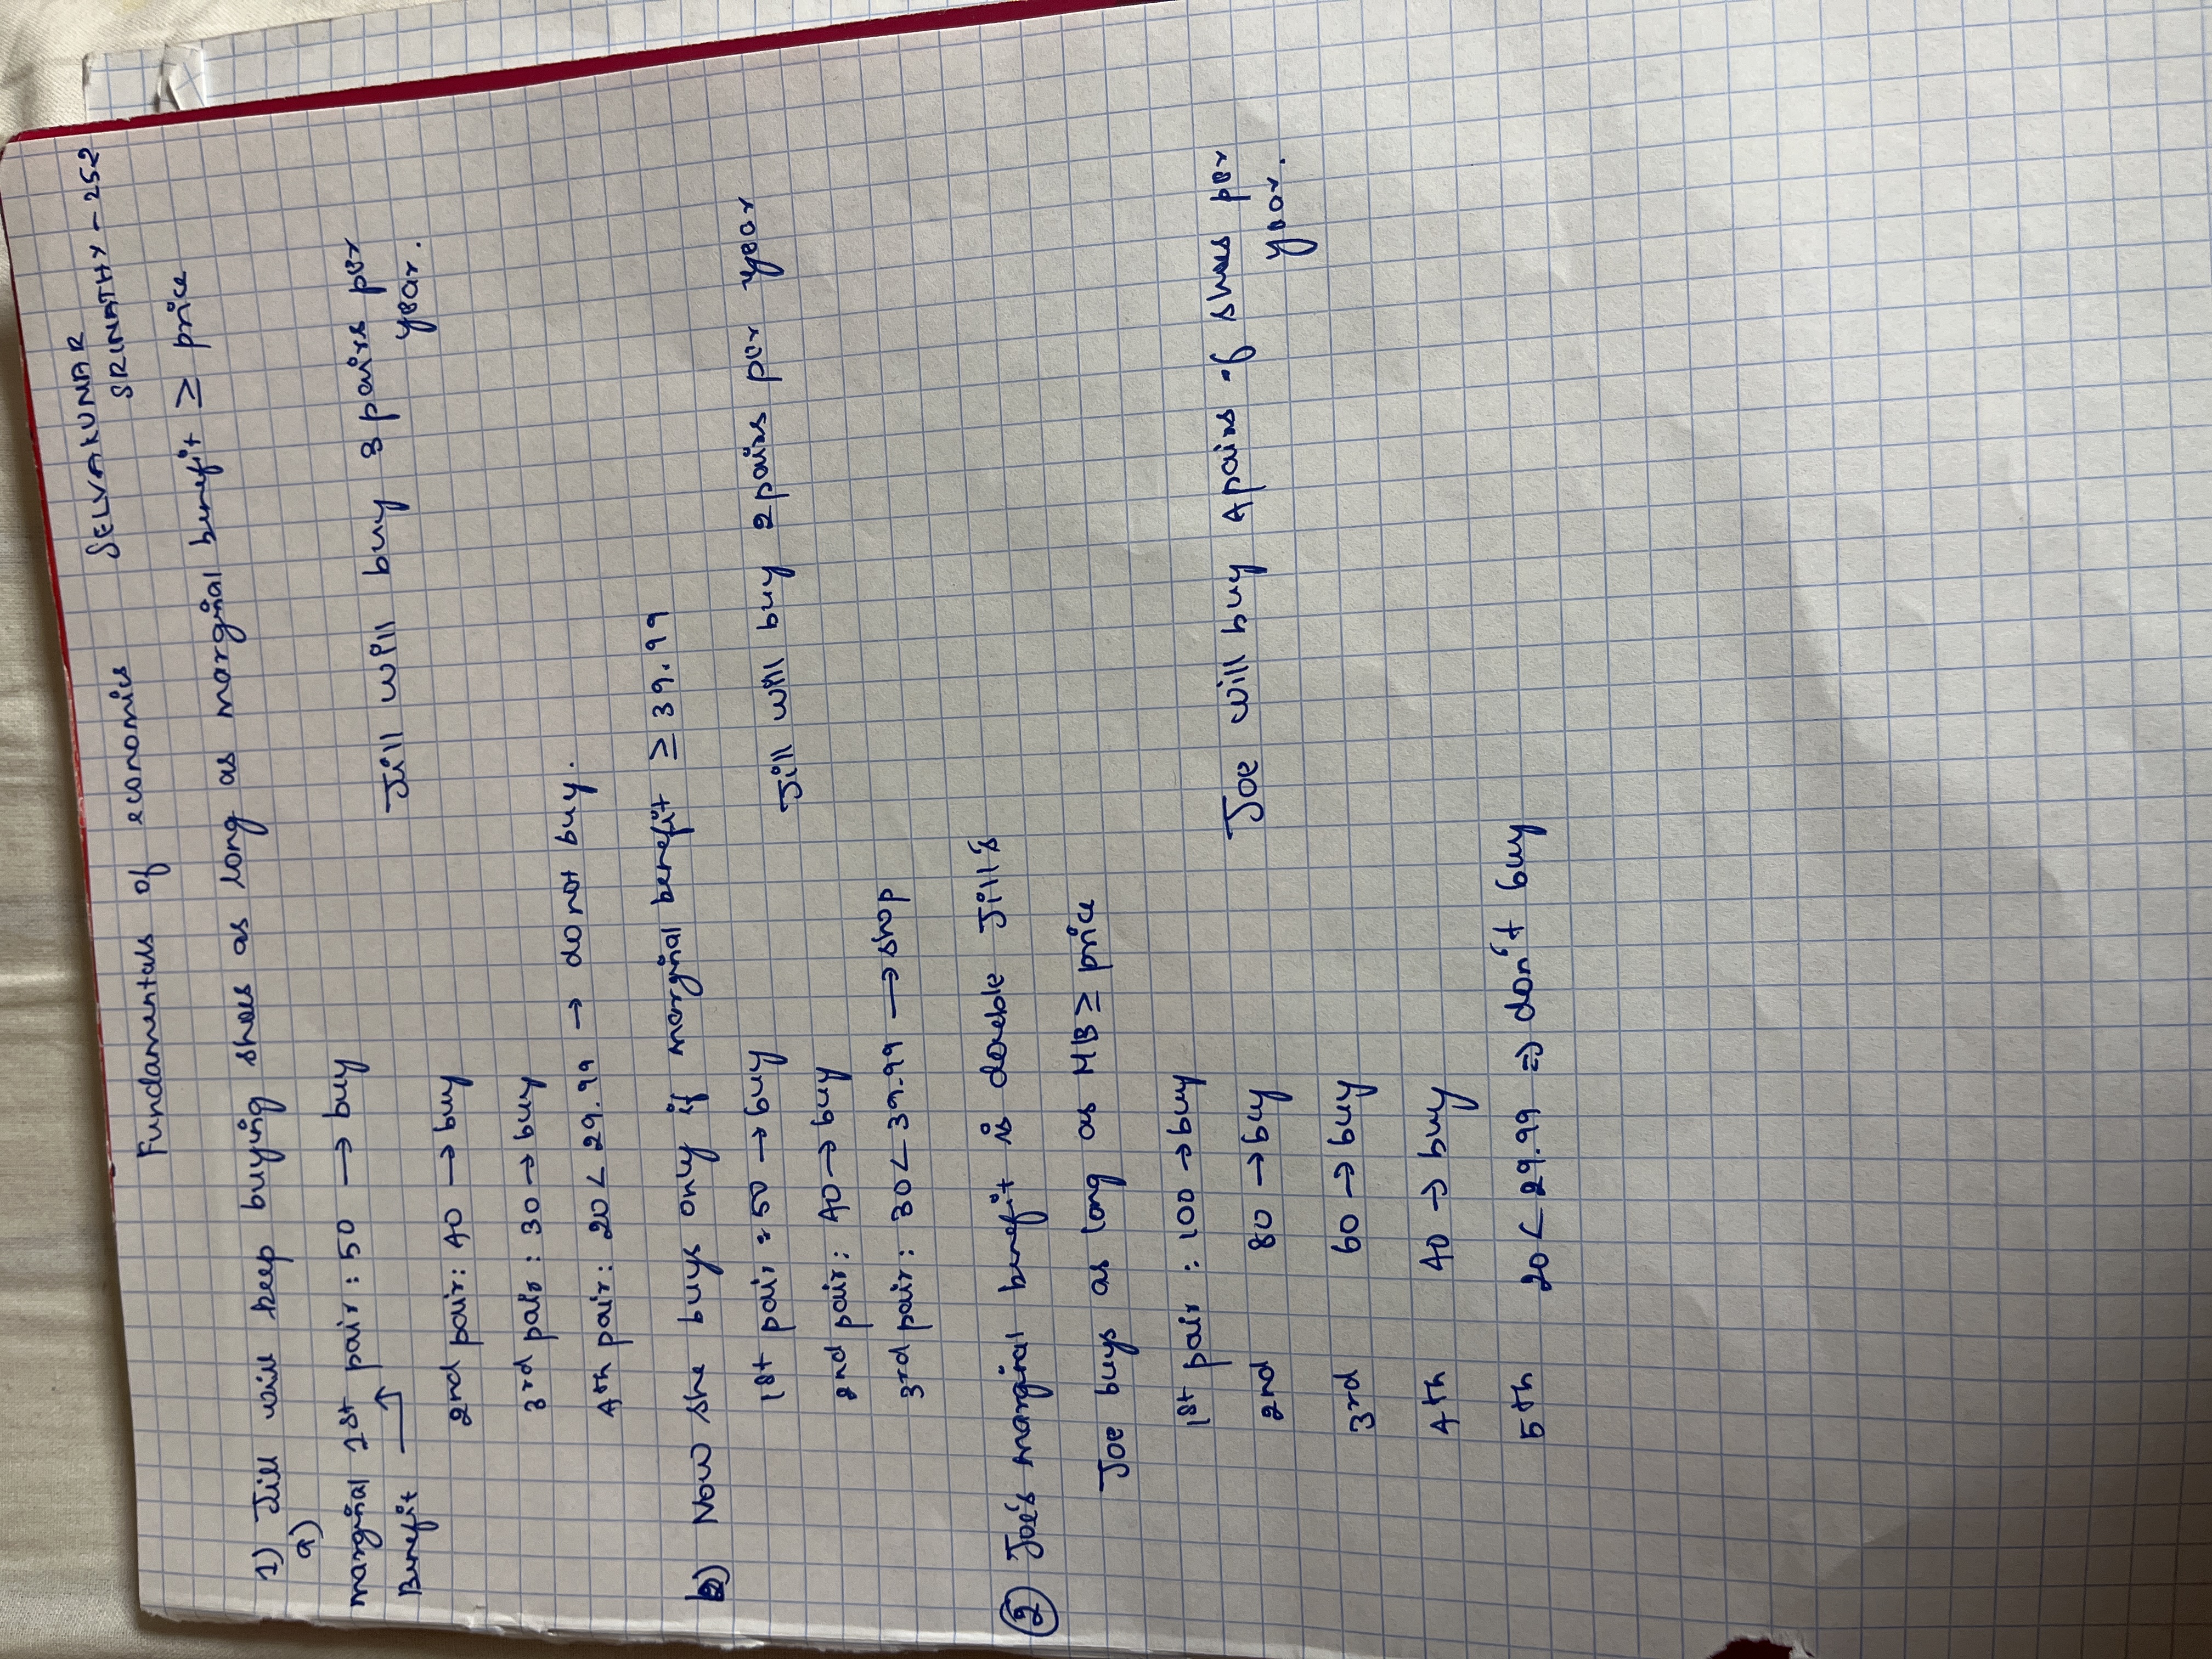 Fundamentals of economics
SELVAKUMAR
SRINATHY - 252
1) Jill will keep buying shoes as long as marginal benefit ≥ price
a)
marginal 1st pair : 50 → buy
Benefit
Jill will buy 3 pairs per
year.
2nd pair : 40 → buy
3rd pair : 30 → buy
4th pair : 20 < 29.99 → do not buy.
b) Now she buys only if marginal benefit ≥ 39.99
1st pair : 50 → buy
Jill will buy 2 pairs per year
2nd pair : 40 → buy
3rd pair : 30 < 39.99 → shop
② Joe's marginal benefit is double Jill's
Joe buys as long as MB ≥ price
1st pair : 100 → buy
Joe will buy 4 pairs of shoes per
year.
2nd 80 → buy
3rd 60 → buy
4th 40 → buy
5th 20 < 29.99 => don't buy